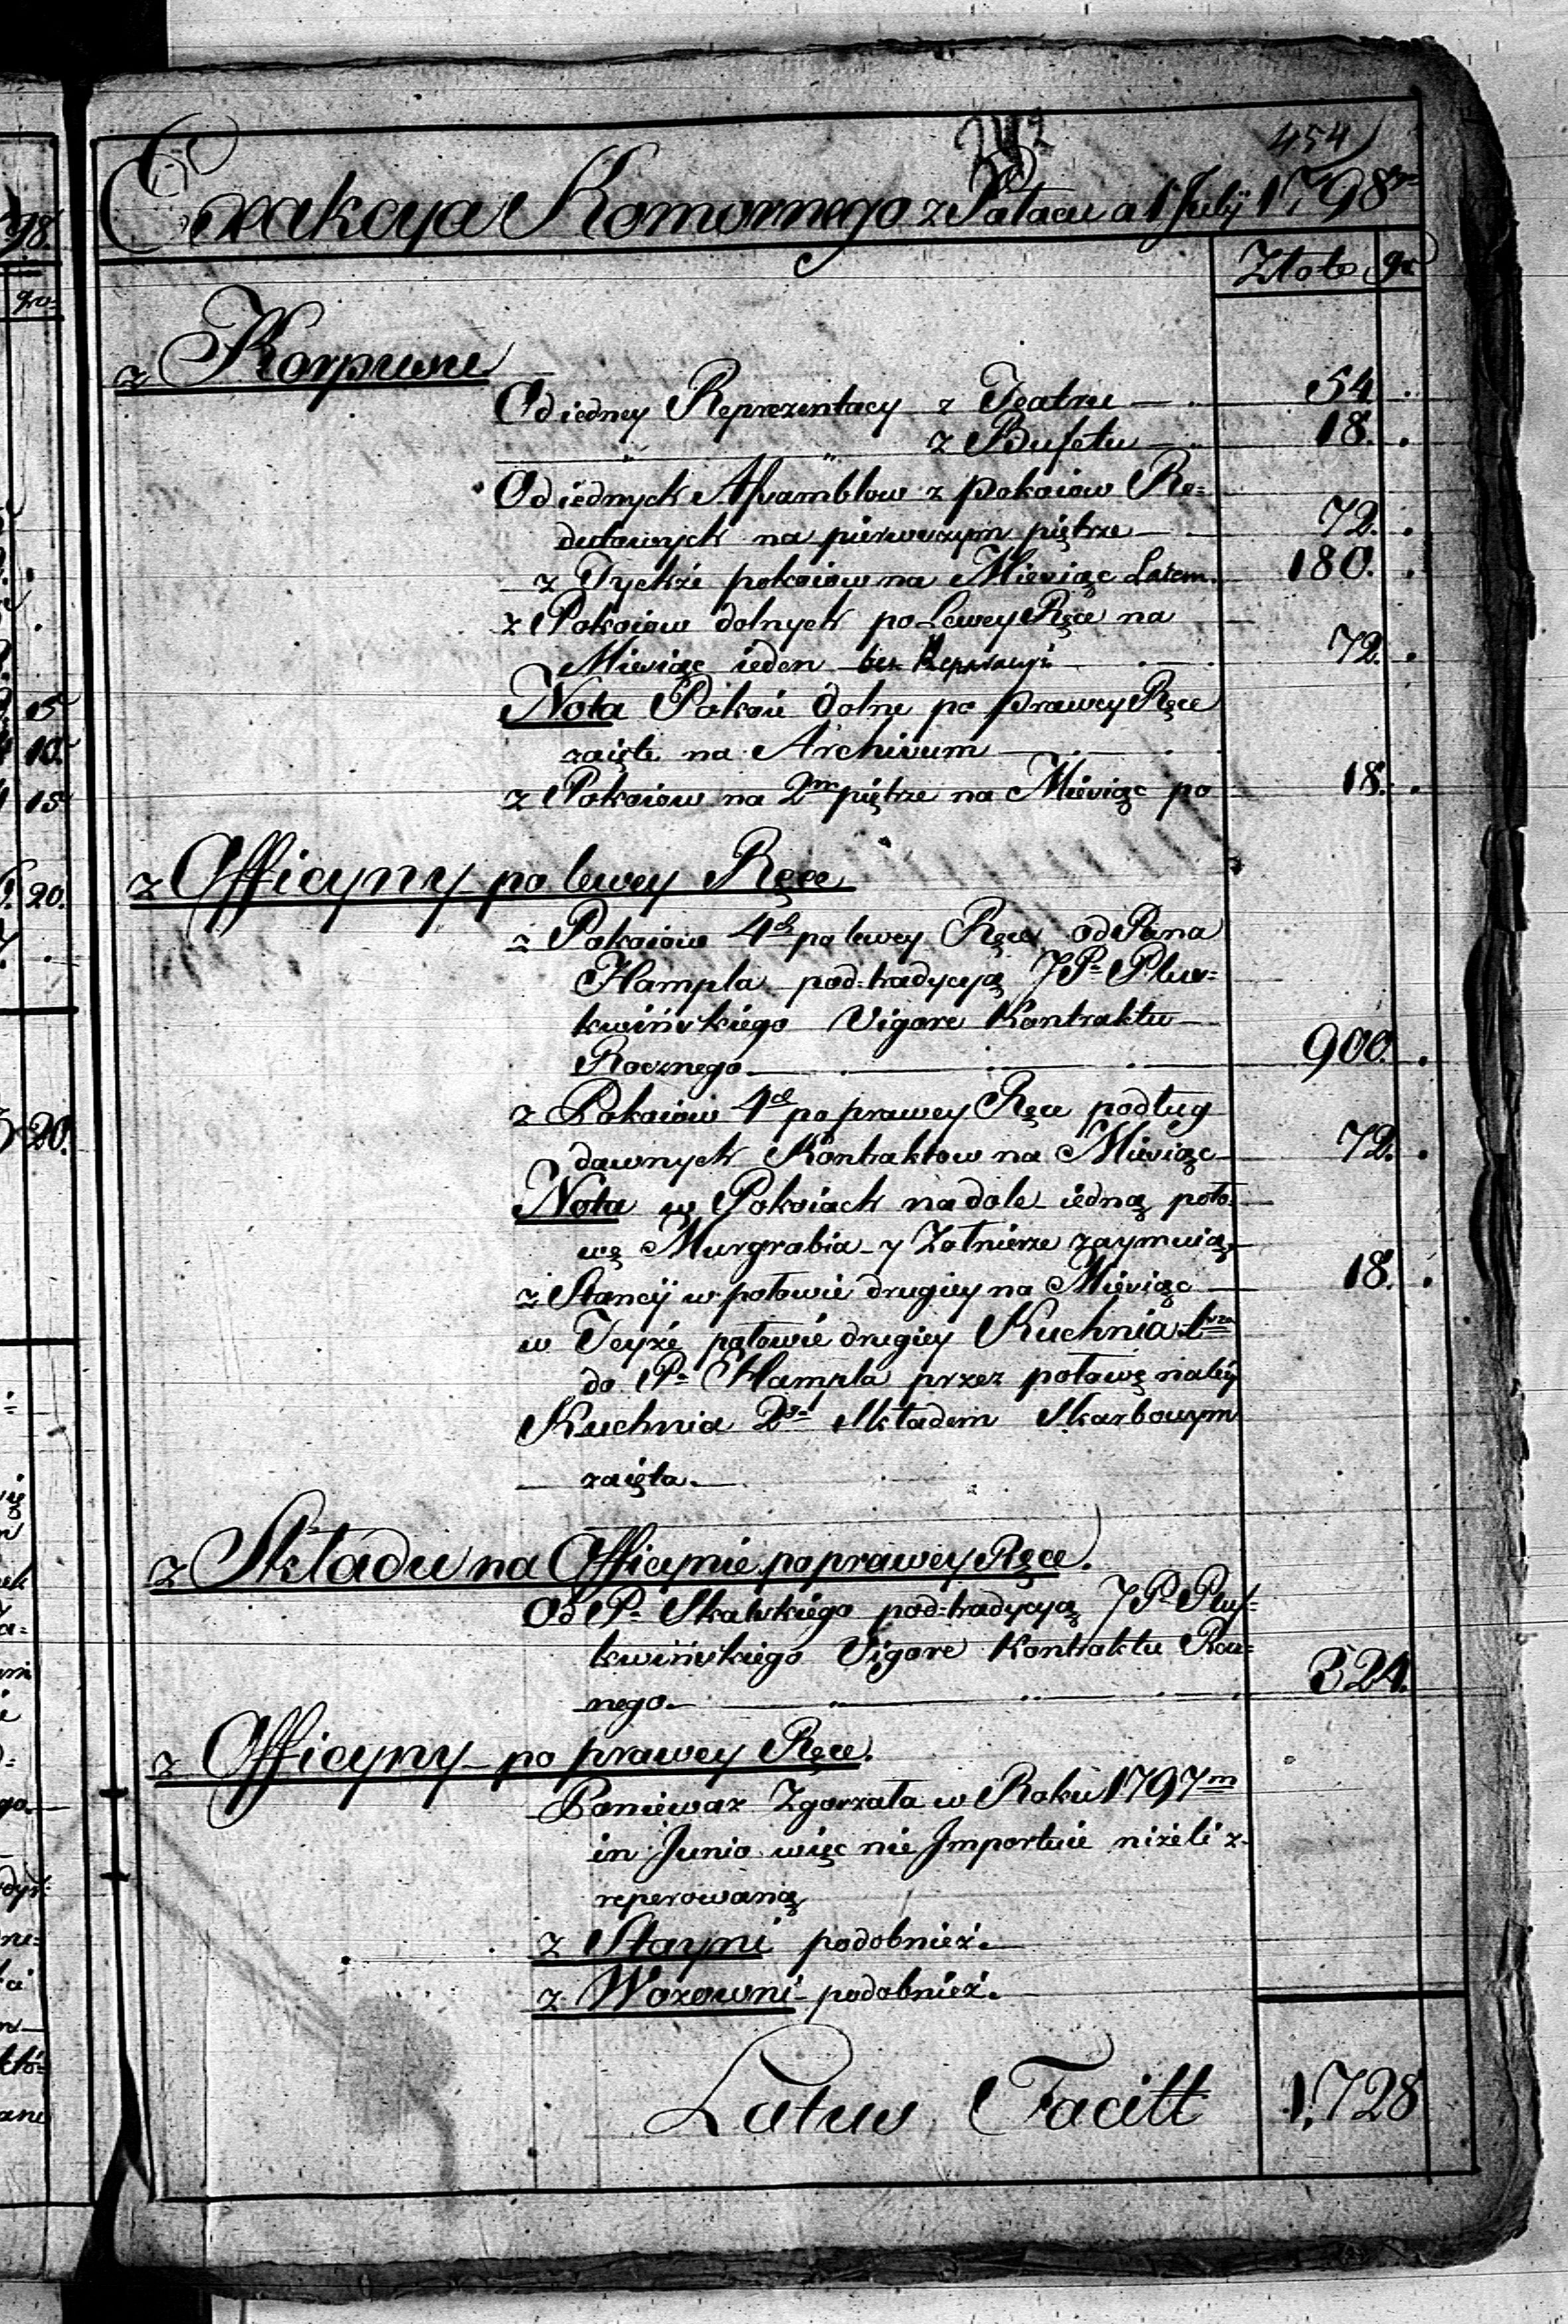 454
Exakcya Komornego z Pałacu a 1 Julij 1798
Złote gr
z Korpusu
Od iedney Reprezentacy z Teatru 54
" " z Bufetu 18.
Od iednych Assamblow z Pokoiow Re=
dutowych na pierwszym piętrze 72.
z Tychże pokoiow na Miesiąc Latem 180.
z Pokoiow dolnych po Lewey Ręce na
Miesiąc ieden bez Reparacyi 72.
Nota Pokoie dolne po prawey Ręce
zaięte na Archivum
z Pokoiow na 2m piętrze na Miesiąc po 18.
z Officyny po lewey Ręce
z Pokoiow 4ch po lewey Ręce od Pana
Hampla pod tradycyą JP Plus=
kwińskiego Vigore Kontraktu
Rocznego 900.
z Pokoiow 4ch po prawey Ręce podług
dawnych Kontraktow na Miesiąc 72.
Nota w Pokoiach na dole iedną poło=
wę Murgrabia y Żołnierze zaymuią
z Stancij w połowie drugiey na Miesiąc 18.
w Teyże połowie drugiey Kuchnia 1wsza
do P. Hampla przez połowę należy
Kuchnia 2ga Składem Skarbowym
zaięta.
z Składu na Officynie po prawey Ręce.
Od P. Skalskiego pod tradycyą JP Plus=
kwińskiego Vigore Kontraktu Rocz=
nego. 324.
z Officyny po prawey Ręce.
Poniewaz Zgorzała w Roku 1797m
in Junio więc nie Importuie niżeli z
reperowaną
z Stayni podobnież.
z Wozowni podobnież.
Latus Facitt 1,728